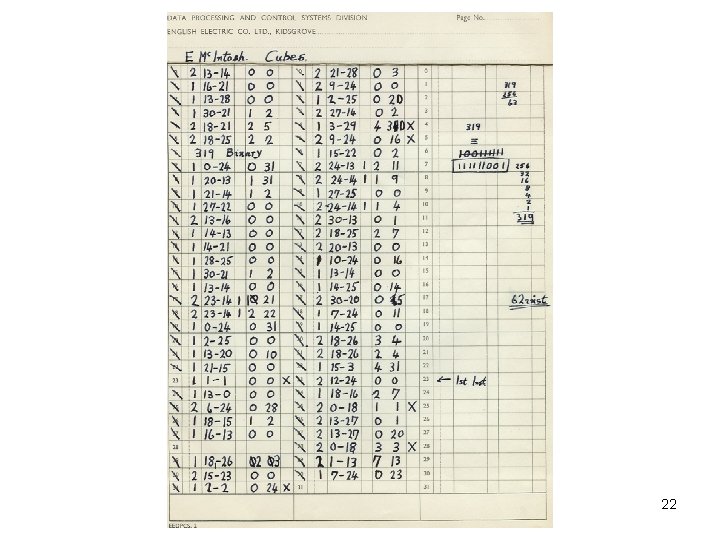 DATA PROCESSING AND CONTROL SYSTEMS DIVISION Page No.
ENGLISH ELECTRIC CO. LTD., KIDSGROVE
E McIntosh. Cubes.
2 13-14 0 0 2 21-28 0 3 0
1 16-21 0 0 2 9-24 0 0 1 319
1 13-28 0 0 1 2-25 0 20 2 256
63
1 30-21 1 2 2 27-14 0 2 3
2 18-21 2 5 1 3-29 4 X 4 319
2 18-25 2 2 2 9-24 0 16 X 5 =
319 Binary 1 15-22 0 2 6 100111111
1 0-24 0 31 2 24-13 1 2 11 7 111111001 256
1 20-13 1 31 2 24-14 1 1 9 8 32
16
1 21-14 1 2 1 27-25 0 0 9 8
4
1 27-22 0 0 2 24-14 1 1 4 10 2
1
2 13-16 0 0 2 30-13 0 1 11 319
1 14-13 0 0 2 18-25 2 7 12
1 14-21 0 0 2 20-13 0 0 13
1 28-25 0 0 1 10-24 0 16 14
1 30-21 1 2 1 13-14 0 0 15
1 13-14 0 0 1 14-25 0 14 16
2 23-14 1 21 2 30-20 0 17 62
2 23-14 1 2 22 1 7-24 0 11 18
1 0-24 0 31 1 14-25 0 0 19
1 2-25 0 0 2 18-26 3 4 20
1 13-20 0 10 2 18-26 2 4 21
1 21-15 0 0 1 15-3 4 31 22
23 1 1-1 0 0 X 2 12-24 0 0 23 ← 1st
1 13-0 0 0 1 18-16 2 7 24
2 6-24 0 28 2 0-18 1 1 X 25
1 18-15 1 2 2 13-27 0 1 26
1 16-13 0 0 2 13-27 0 20 27
28 2 0-18 3 3 X 28
1 18-26 2 1-13 7 13 29
2 15-23 0 0 1 7-24 0 23 30
1 2-2 0 24 X 31 31
EEDPCS. 2
22